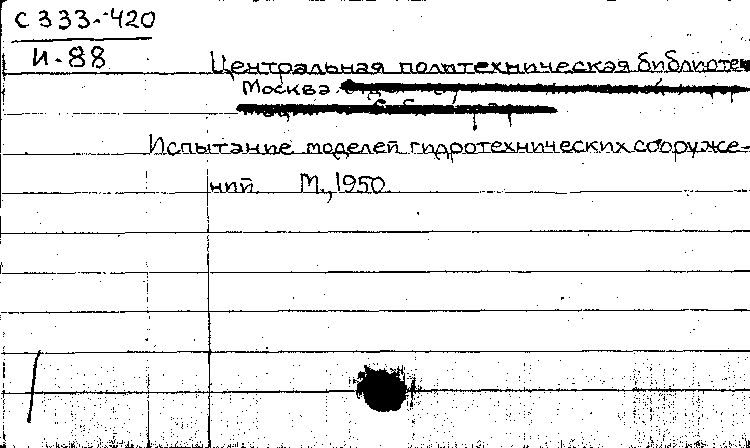 С 333-420
И-88
Центральная политехническая библиотек
Москва
Испытание моделей гидротехнических сооруже-
ний. М., 1950.